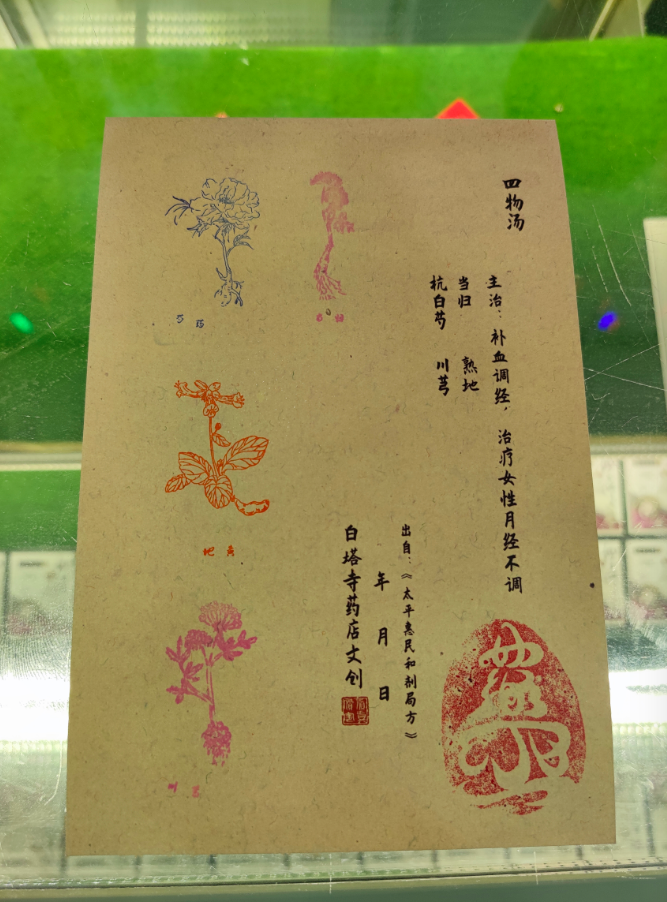 四物汤
主治：补血调经，治疗女性月经不调
当归 熟地
杭白芍 川芎
出自：《太平惠民和剂局方》
年 月 日
白塔寺药店文创
芍药
当归
地黄
川芎